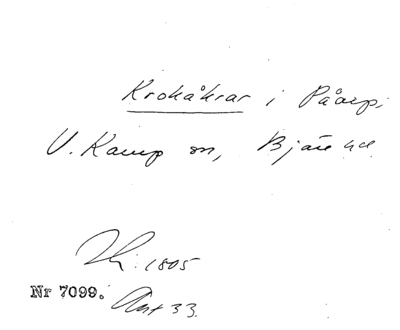 Krokåkrar i Påarp,
V. Karup sn, Bjäre hd.
1805
Nr 7099. Akt 33.